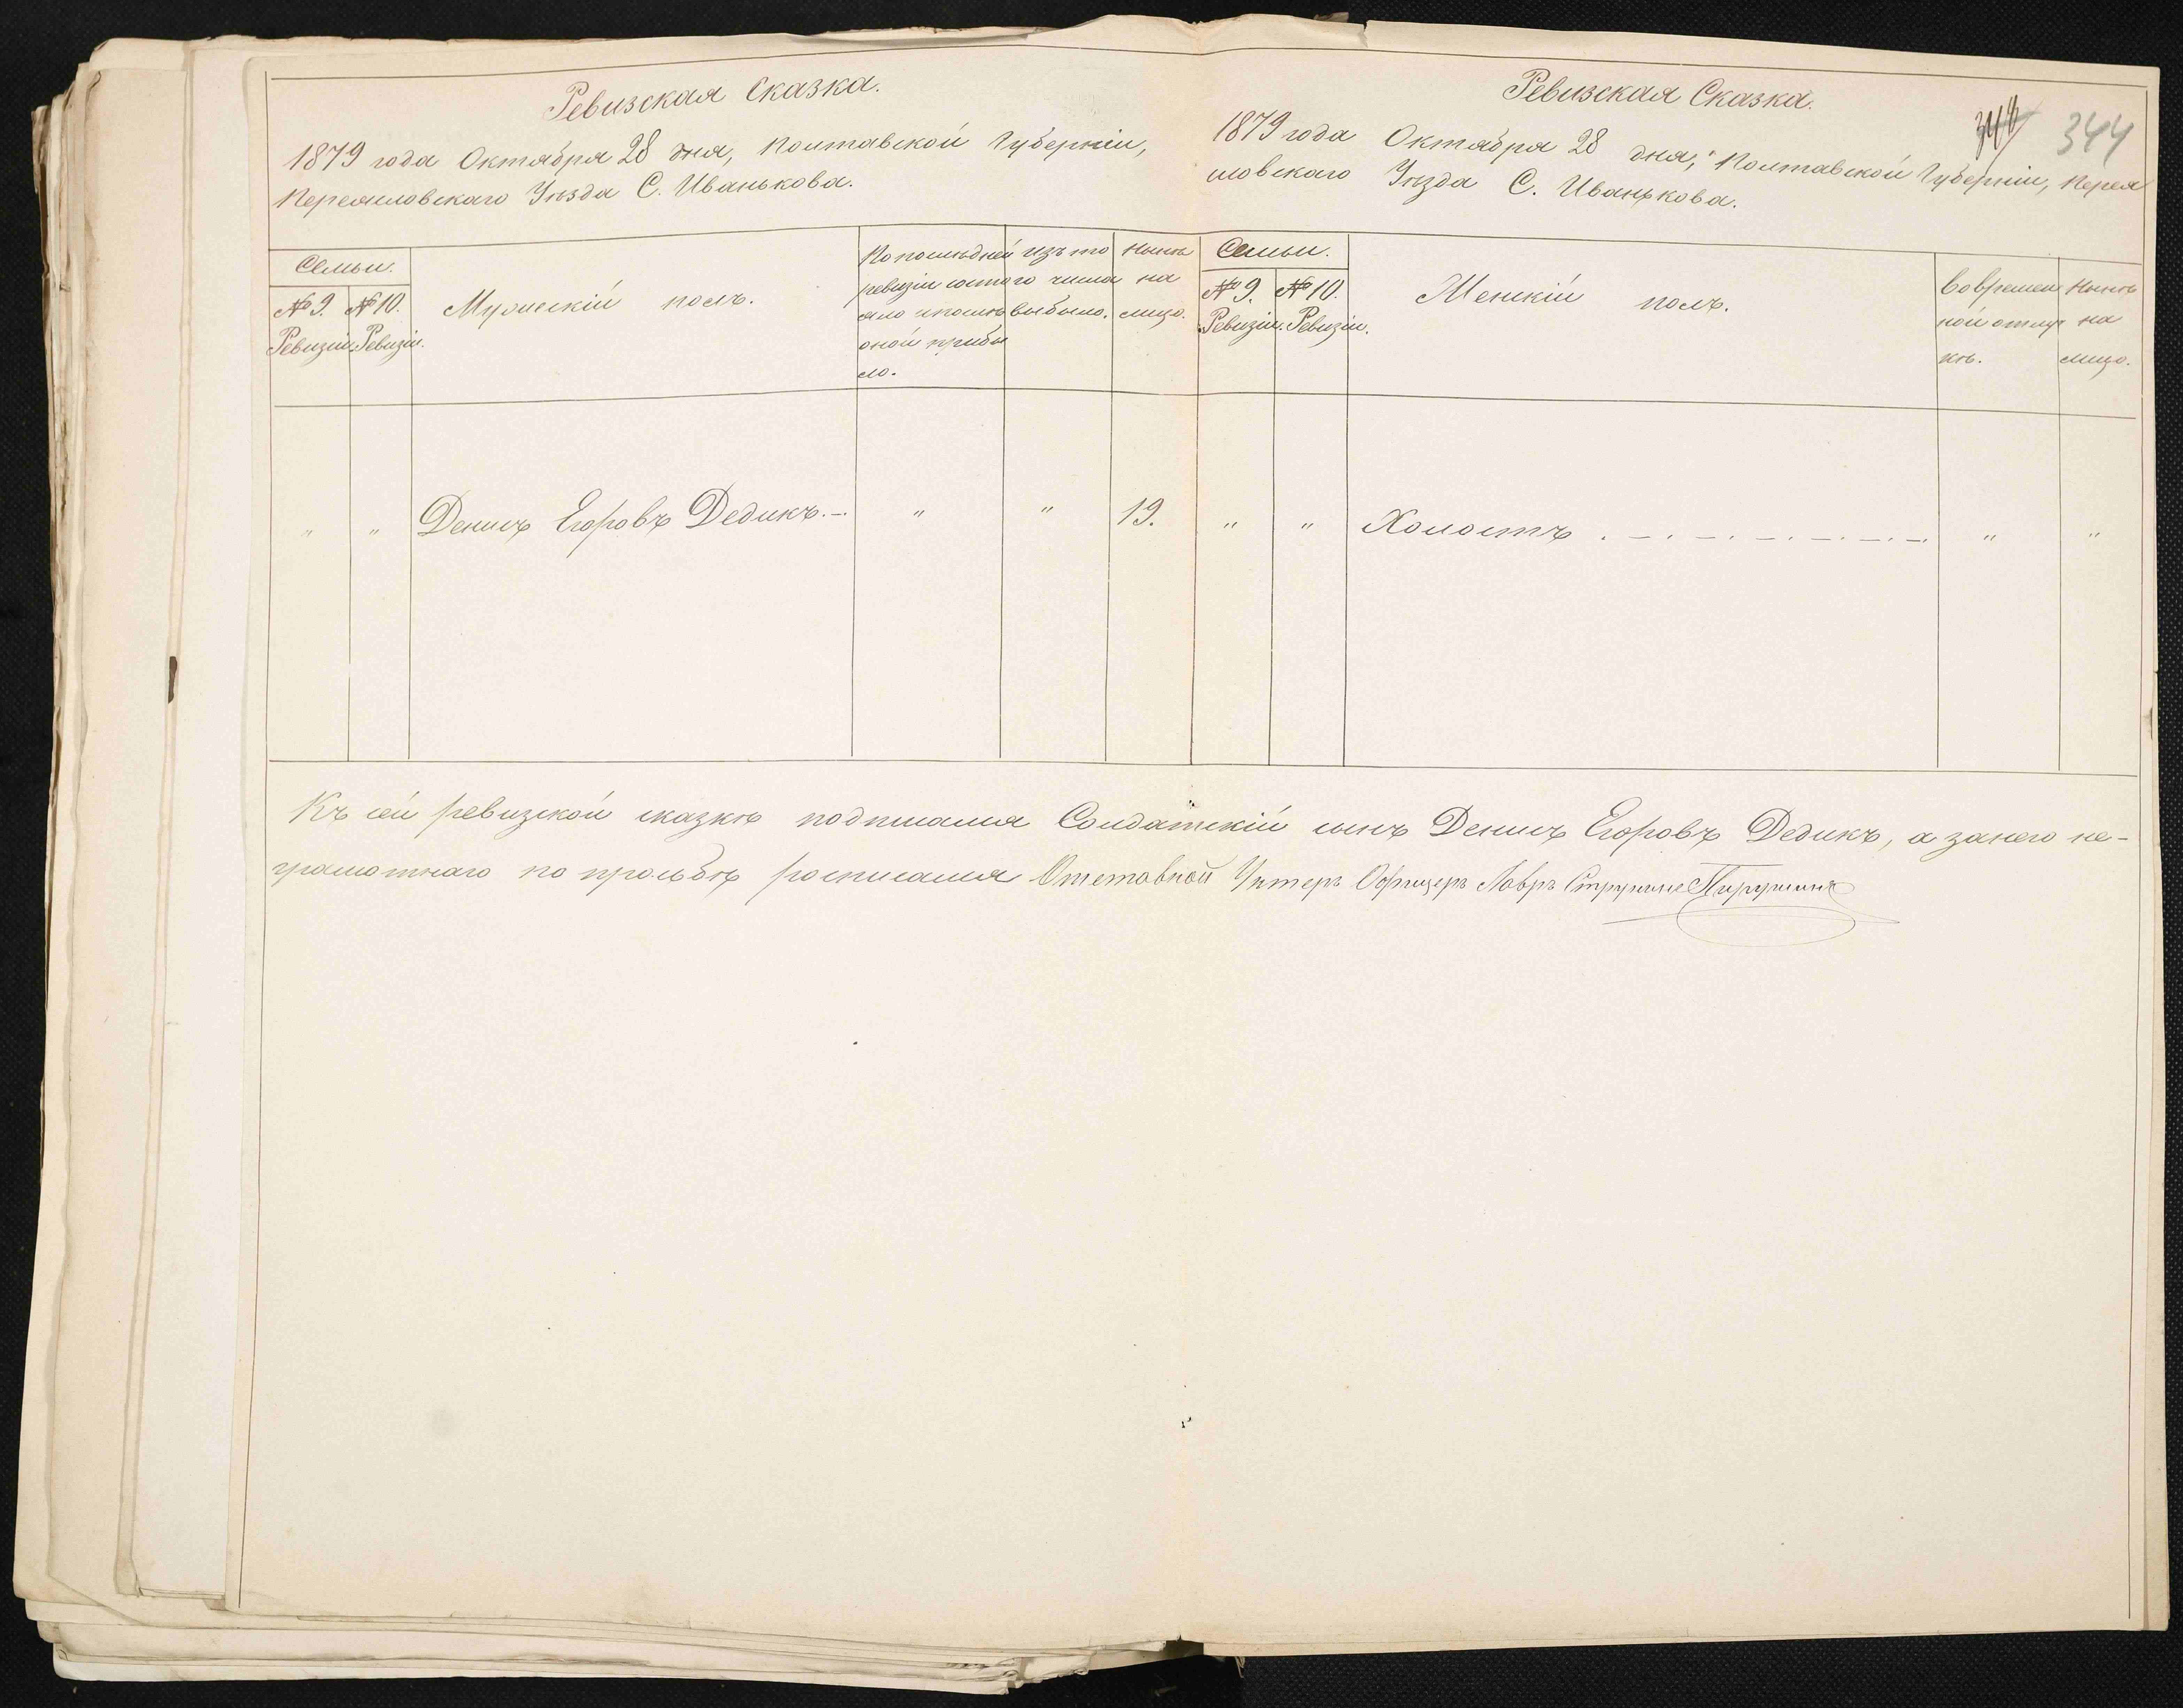 Ревизская Сказка.
1879 года Октября 28 дня, Полтавской Губерніи,
Переяславскаго Уѣзда С. Иванькова.
Семьи.
№ 9. Ревизіи.
№ 10. Ревизіи.
Мужескій полъ.
По послѣдней
ревизіи состо
яло и послѣ
оной прибы
ло.
Изъ то
го числа
выбыло.
Нынѣ
на
лицо.
" " Денисъ Егоровъ Дедикъ. " " 19.
Ревизская Сказка.
344
1879 года Октября 28 дня, Полтавской Губерніи, Перея
словскаго Уѣзда С. Иванькова.
Семьи.
№ 9. Ревизіи.
№ 10. Ревизіи.
Женскій полъ.
Во времен
ной отлуч
кѣ.
Нынѣ
на
лицо.
" " Холостъ . — . — . — . — . — . — . " "
Къ сей ревизской сказкѣ подписался Солдатскій сынъ Денисъ Егоровъ Дедикъ, а за него не-
грамотнаго по прозьбѣ росписался Отставной Унтеръ Офицеръ Лавръ